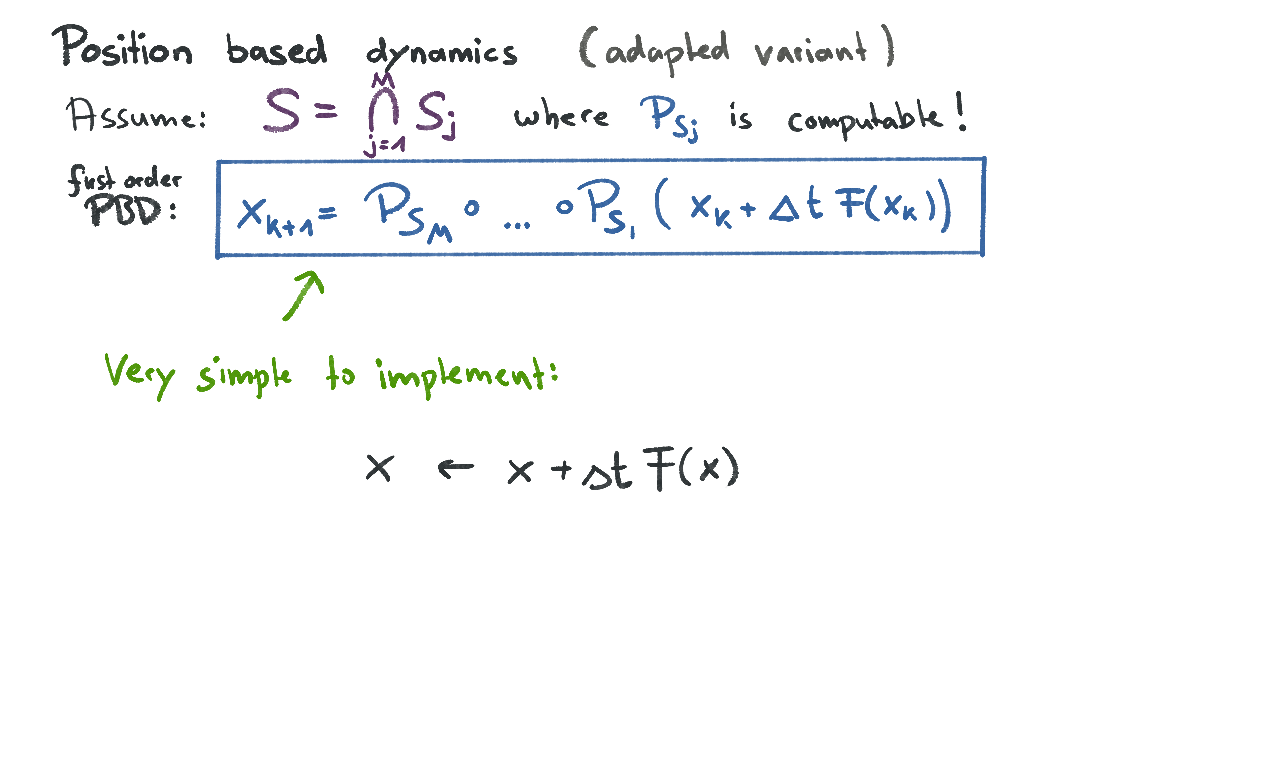 Position based dynamics (adapted variant)
Assume: S = ⋂_{j=1}^{M} S_j where P_{S_j} is computable!
first order
PBD: x_{k+1} = P_{S_M} ∘ ... ∘ P_{S_1} ( x_k + Δt F(x_k))
Very simple to implement:
x ← x + Δt F(x)